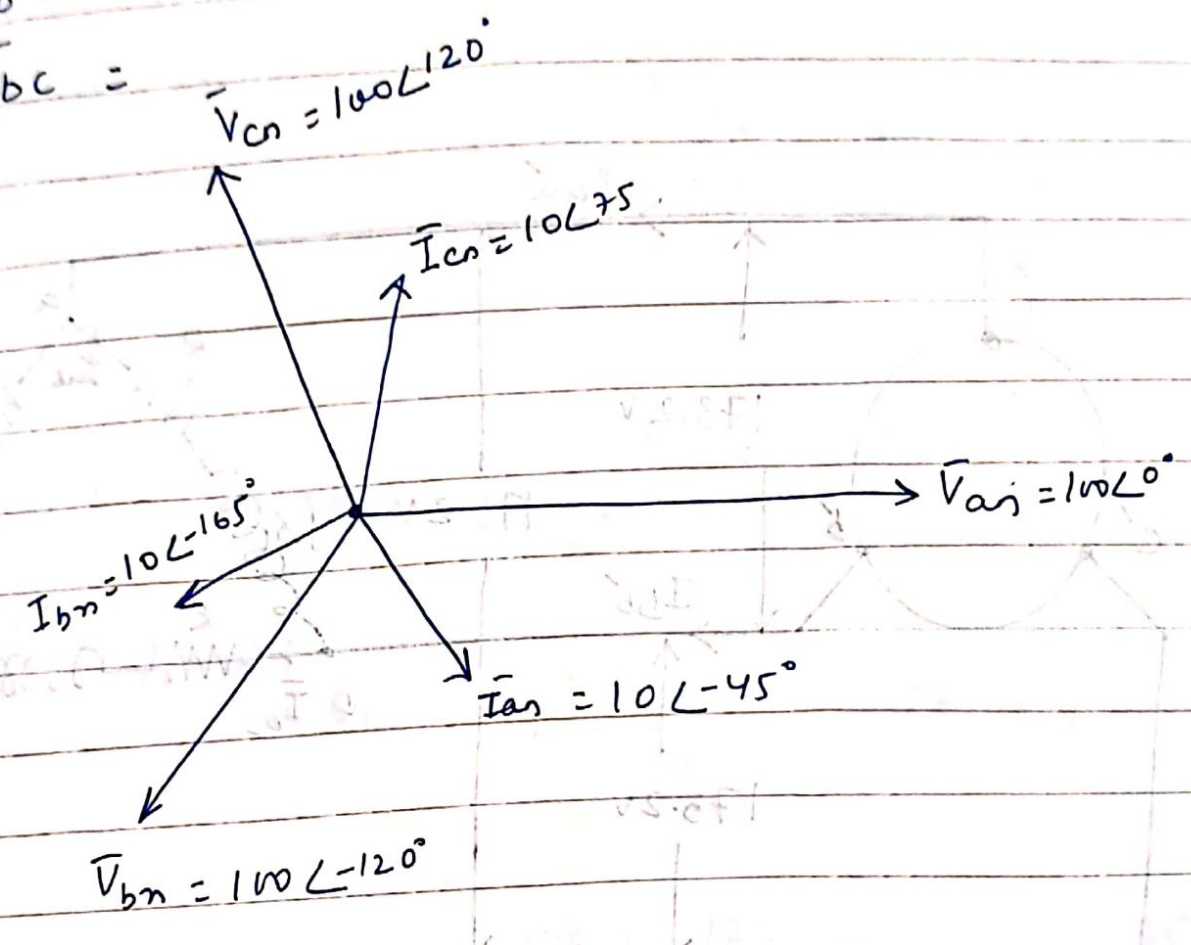 bc =
V̄cn = 100∠120°
Īcn = 10∠75
V̄an = 100∠0°
Ibn = 10∠-165°
Īan = 10∠-45°
V̄bn = 100∠-120°